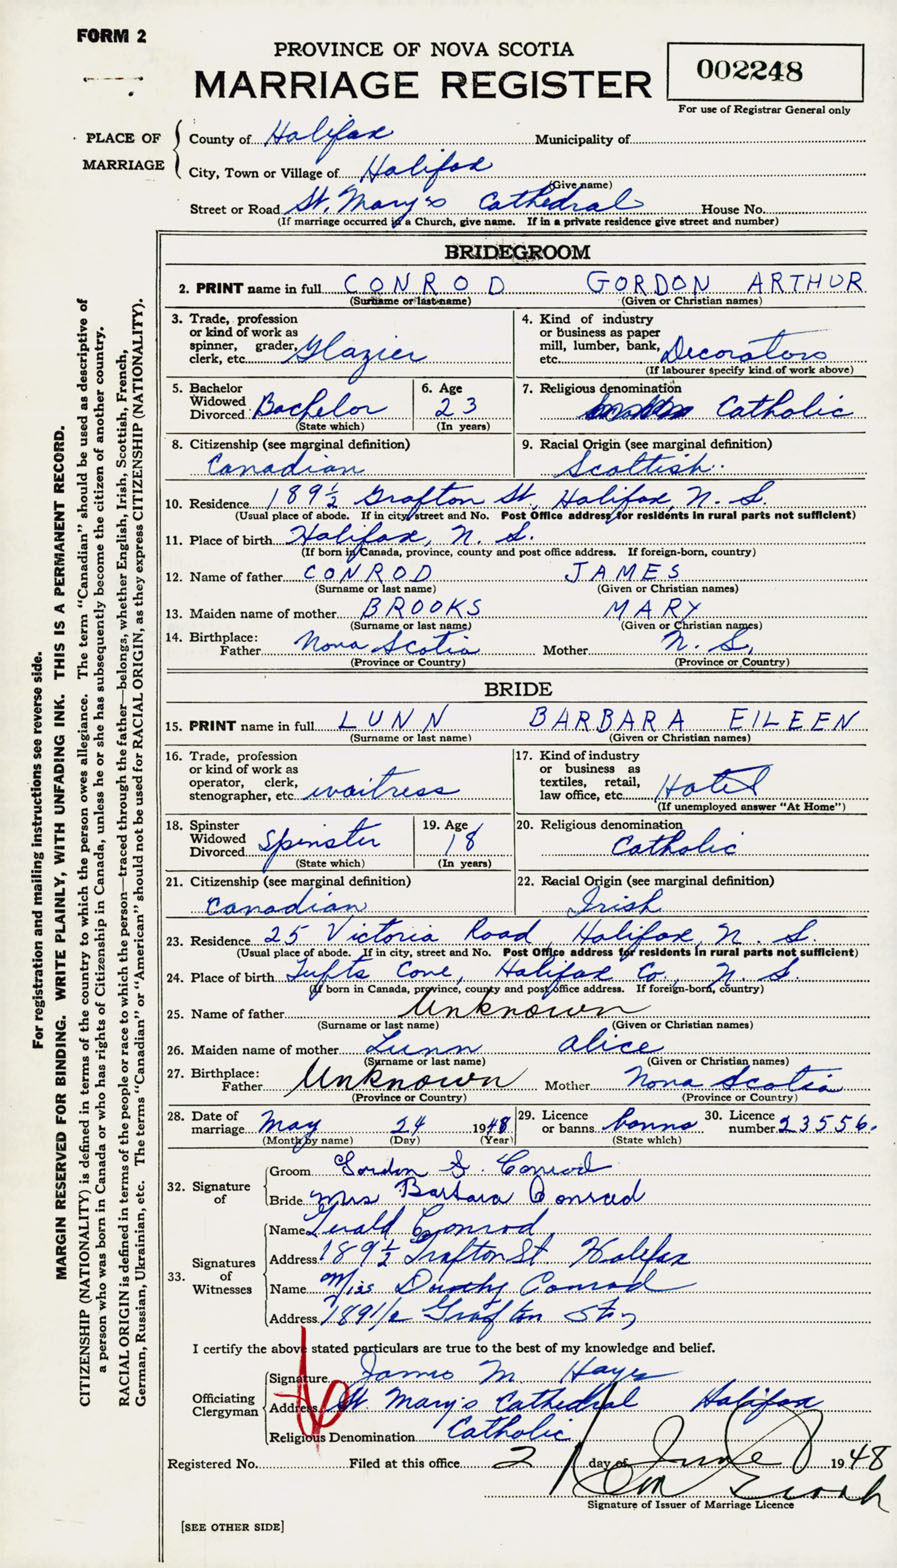 FORM 2
PROVINCE OF NOVA SCOTIA
MARRIAGE REGISTER
002248
For use of Registrar General only
PLACE OF MARRIAGE
County of Halifax Municipality of
City, Town or Village of Halifax
(Give name)
Street or Road St. Mary's Cathedral House No.
(If marriage occurred in a Church, give name. If in a private residence give street and number)
BRIDEGROOM
2. PRINT name in full CONROD GORDON ARTHUR
(Surname or last name) (Given or Christian names)
3. Trade, profession or kind of work as spinner, grader, clerk, etc. Glazier
4. Kind of industry or business as paper mill, lumber, bank, etc. Decorators
(If labourer specify kind of work above)
5. Bachelor Widowed Divorced Bachelor
(State which)
6. Age 23
(In years)
7. Religious denomination Catholic
8. Citizenship (see marginal definition)
Canadian
9. Racial Origin (see marginal definition)
Scottish
10. Residence 189½ Grafton St, Halifax, N. S.
(Usual place of abode. If in city, street and No. Post Office address for residents in rural parts not sufficient)
11. Place of birth Halifax, N. S.
(If born in Canada, province, county and post office address. If foreign-born, country)
12. Name of father CONROD JAMES
(Surname or last name) (Given or Christian names)
13. Maiden name of mother BROOKS MARY
(Surname or last name) (Given or Christian names)
14. Birthplace:
Father Nova Scotia Mother N. S.
(Province or Country) (Province or Country)
BRIDE
15. PRINT name in full LUNN BARBARA EILEEN
(Surname or last name) (Given or Christian names)
16. Trade, profession or kind of work as operator, clerk, stenographer, etc. waitress
17. Kind of industry or business as textiles, retail, law office, etc. Hotel
(If unemployed answer "At Home")
18. Spinster Widowed Divorced Spinster
(State which)
19. Age 18
(In years)
20. Religious denomination
Catholic
21. Citizenship (see marginal definition)
Canadian
22. Racial Origin (see marginal definition)
Irish
23. Residence 25 Victoria Road, Halifax, N. S.
(Usual place of abode. If in city, street and No. Post Office address for residents in rural parts not sufficient)
24. Place of birth Tufts Cove, Halifax Co., N. S.
(If born in Canada, province, county and post office address. If foreign-born, country)
25. Name of father Unknown
(Surname or last name) (Given or Christian names)
26. Maiden name of mother Lunn Alice
(Surname or last name) (Given or Christian names)
27. Birthplace:
Father Unknown Mother Nova Scotia
(Province or Country) (Province or Country)
28. Date of marriage May 24 1948
(Month by name) (Day) (Year)
29. Licence or banns banns
(State which)
30. Licence number 23556.
32. Signature of
Groom Gordon A. Conrod
Bride Mrs Barbara Conrod
33. Signatures of Witnesses
Name Gerald Conrod
Address 189½ Grafton St Halifax
Name Miss Dorothy Conrod
Address 189 1/2 Grafton St
I certify the above stated particulars are true to the best of my knowledge and belief.
Officiating Clergyman
Signature James M. Hayes
Address St Mary's Cathedral Halifax
Religious Denomination Catholic
Registered No. Filed at this office 2 day of June 1948
Signature of Issuer of Marriage Licence
[SEE OTHER SIDE]
For registration and mailing instructions see reverse side.
MARGIN RESERVED FOR BINDING. WRITE PLAINLY, WITH UNFADING INK. THIS IS A PERMANENT RECORD.
CITIZENSHIP (NATIONALITY) is defined in terms of the country to which the person owes allegiance. The term "Canadian" should be used as descriptive of
a person who was born in Canada or who has rights of Citizenship in Canada, unless he or she has subsequently become the citizen of another country.
RACIAL ORIGIN is defined in terms of the people or race to which the person—traced through the father—belongs, whether English, Irish, Scottish, French,
German, Russian, Ukrainian, etc. The terms "Canadian" or "American" should not be used for RACIAL ORIGIN, as they express CITIZENSHIP (NATIONALITY).